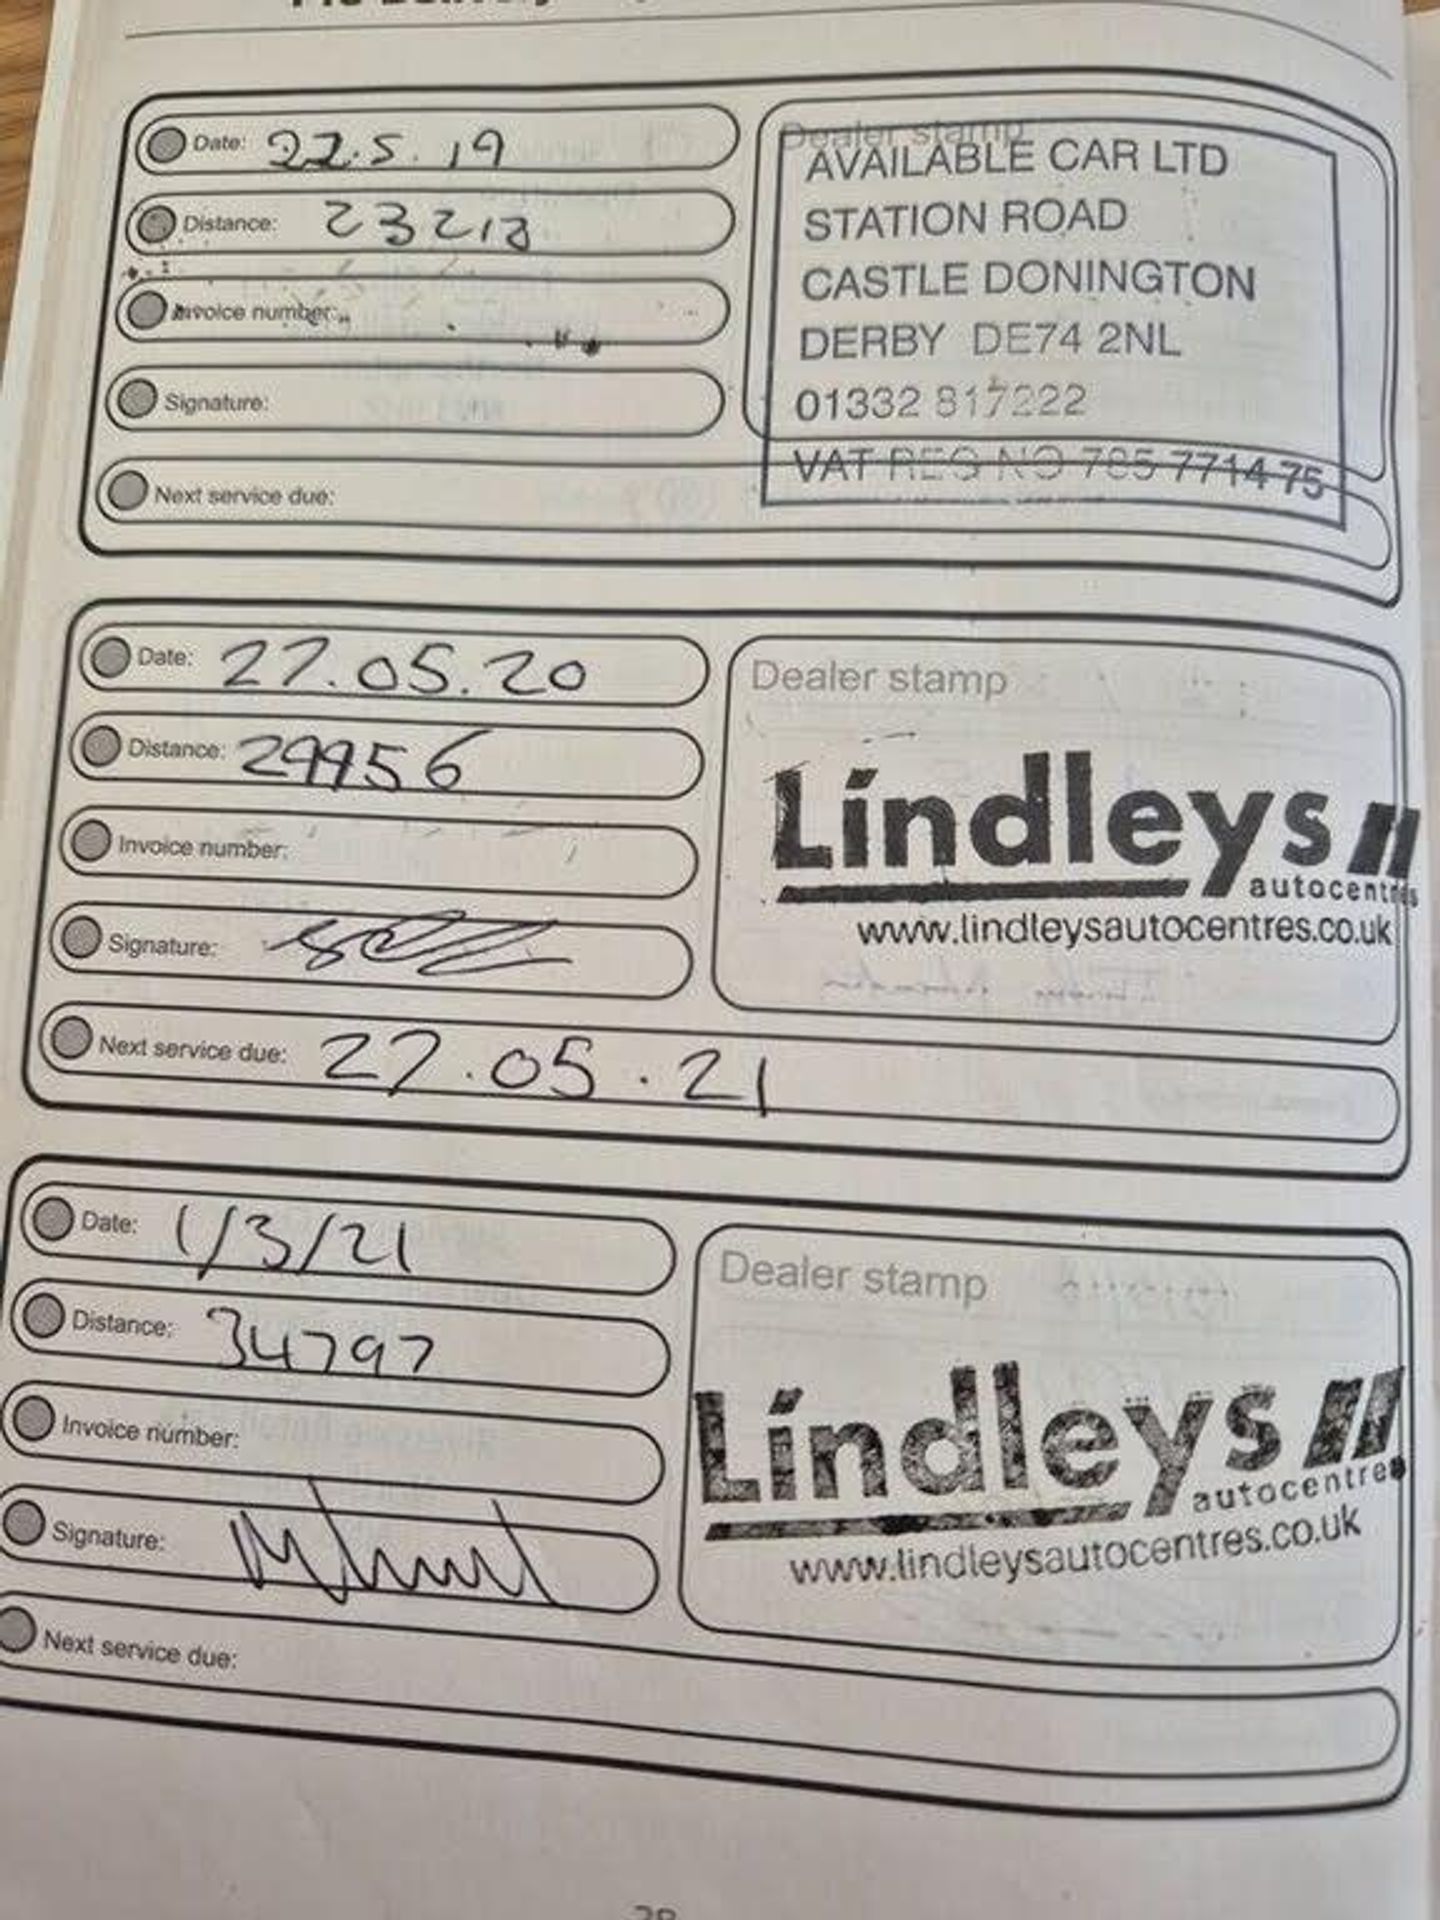 Date: 22.5.19
Distance: 23218
Invoice number:
Signature:
Next service due:
Dealer stamp
AVAILABLE CAR LTD
STATION ROAD
CASTLE DONINGTON
DERBY DE74 2NL
01332 817222
VAT REG NO 785 7714 75
Date: 27.05.20
Distance: 29956
Invoice number:
Signature:
Next service due: 27.05.21
Dealer stamp
Lindleys
autocentres
www.lindleysautocentres.co.uk
Date: 1/3/21
Distance: 34797
Invoice number:
Signature:
Next service due:
Dealer stamp
Lindleys
autocentres
www.lindleysautocentres.co.uk